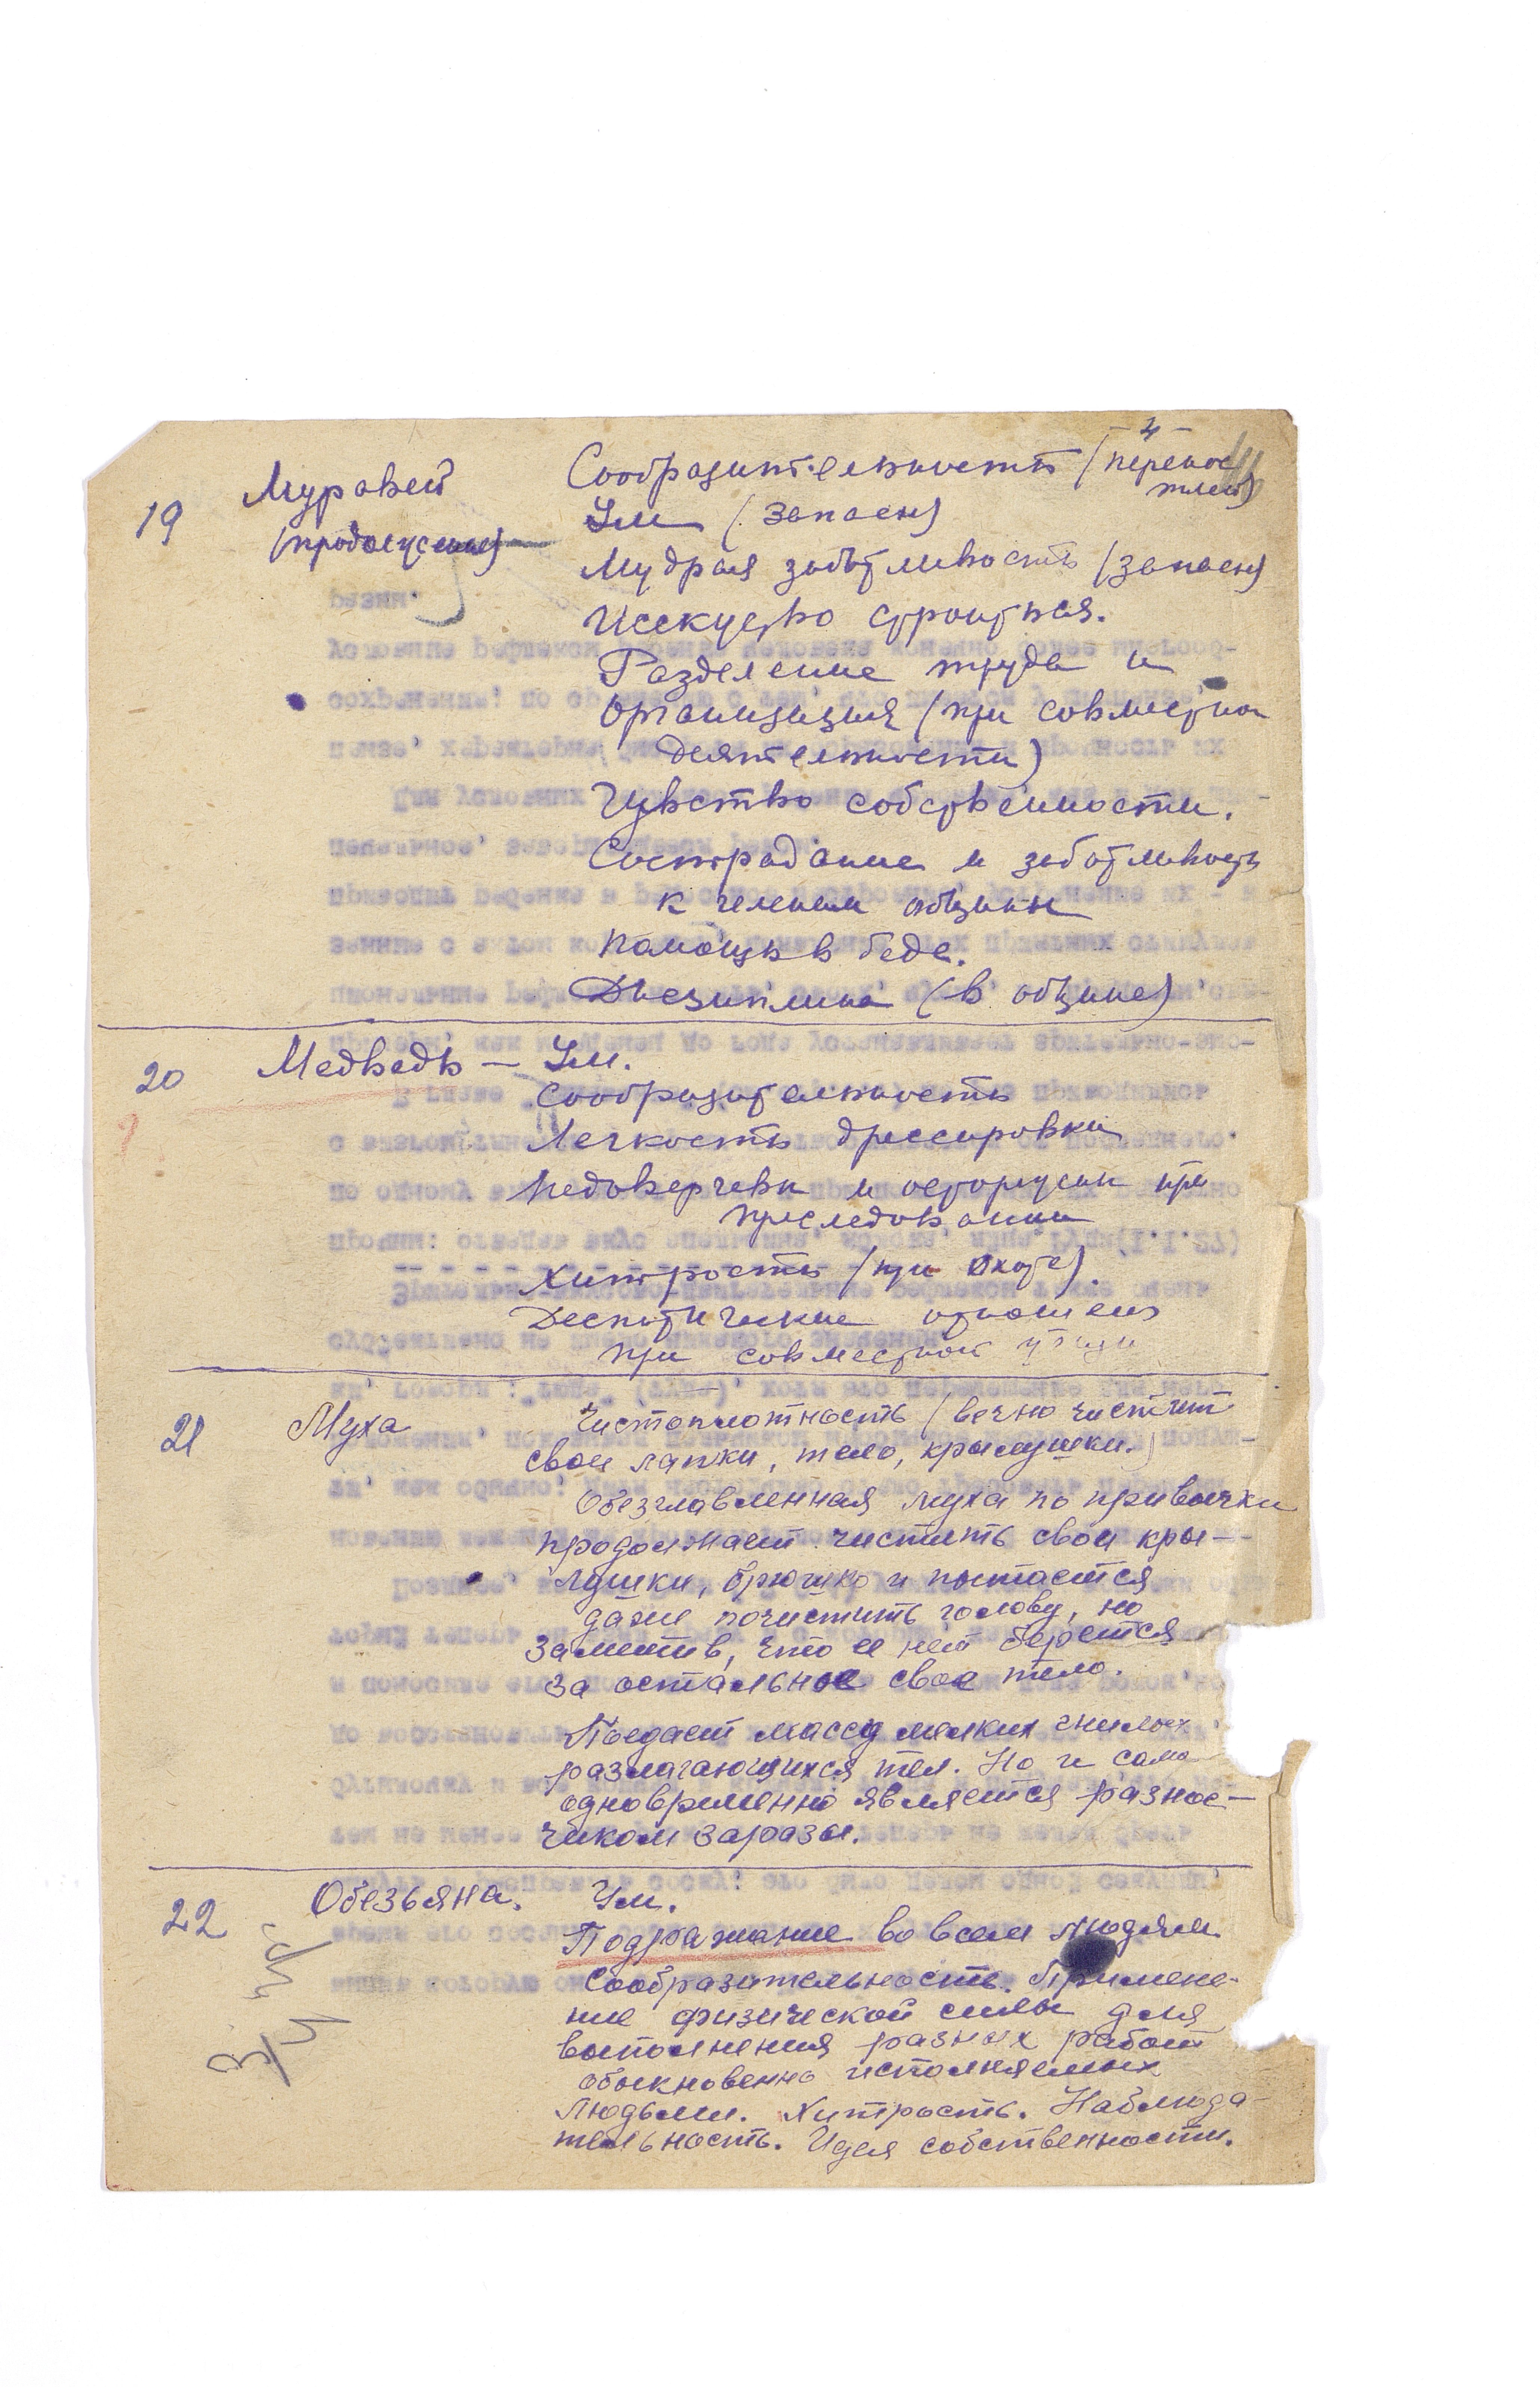 - 4 -
19 Муравей Сообразительность (перенос тлей)
(продолжение) Ум (запасы)
Мудрая заботливость (запасы)
Исскуство строиться.
Разделение труда и
Организация (при совместной
деятельности)
Чувство собственности.
Сострадание и заботливость
к членам общины
Помощь в беде.
Дисциплина (в общине)
20 Медведь — Ум.
Сообразительность
Легкость дрессировки
Недоверчевы и осторожен при
преследовании
Хитрость (при охоте).
Деспотические отношения
при совместной
21 Муха Чистоплотность (вечно чистит
свои лапки, тело, крылушки.)
Обезглавленная муха по привычки
продолжает чистить свои кры-
лушки, брюшко и пытается
даже почистить голову, но
заметив, что ее нет берется
за остальное свое тело.
Поедает массу мелких гнилых
разлагающихся тел. Но и сама
одновременно является разнос-
чиком заразы.
22 Обезьяна. Ум.
Подражание во всем людям
Сообразительность. Примене-
ние физической силы для
выполнения разных работ
обыкновенно исполняемых
людьми. Хитрость. Наблюда-
тельность. Идея собственности.